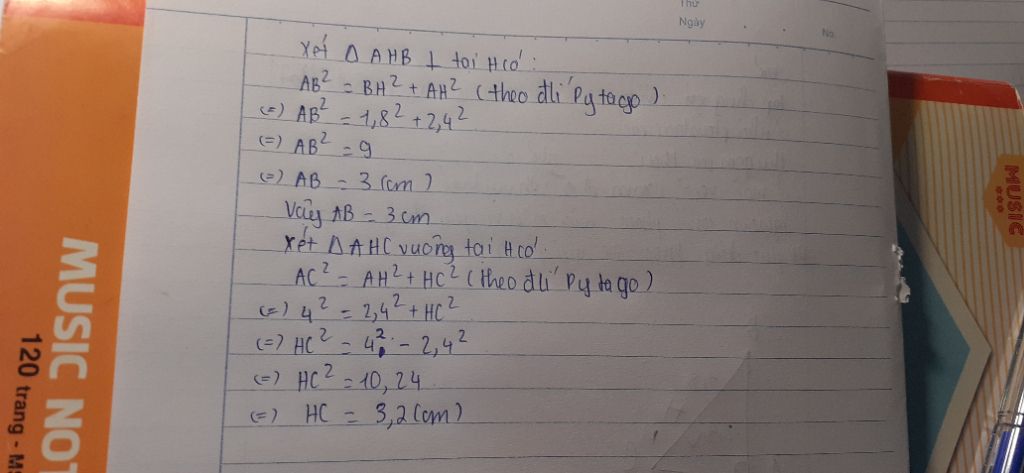 Thứ
Ngày
No.
Xét Δ AHB ⊥ tại H có:
AB² = BH² + AH² (theo đlí Pytago)
(=) AB² = 1,8² + 2,4²
(=) AB² = 9
(=) AB = 3 (cm)
Vậy AB = 3cm
Xét Δ AHC vuông tại H có:
AC² = AH² + HC² (theo đlí Pytago)
(=) 4² = 2,4² + HC²
(=) HC² = 4² - 2,4²
(=) HC² = 10,24
(=) HC = 3,2 (cm)
MUSIC NOT
120 trang - MS
MUSIC